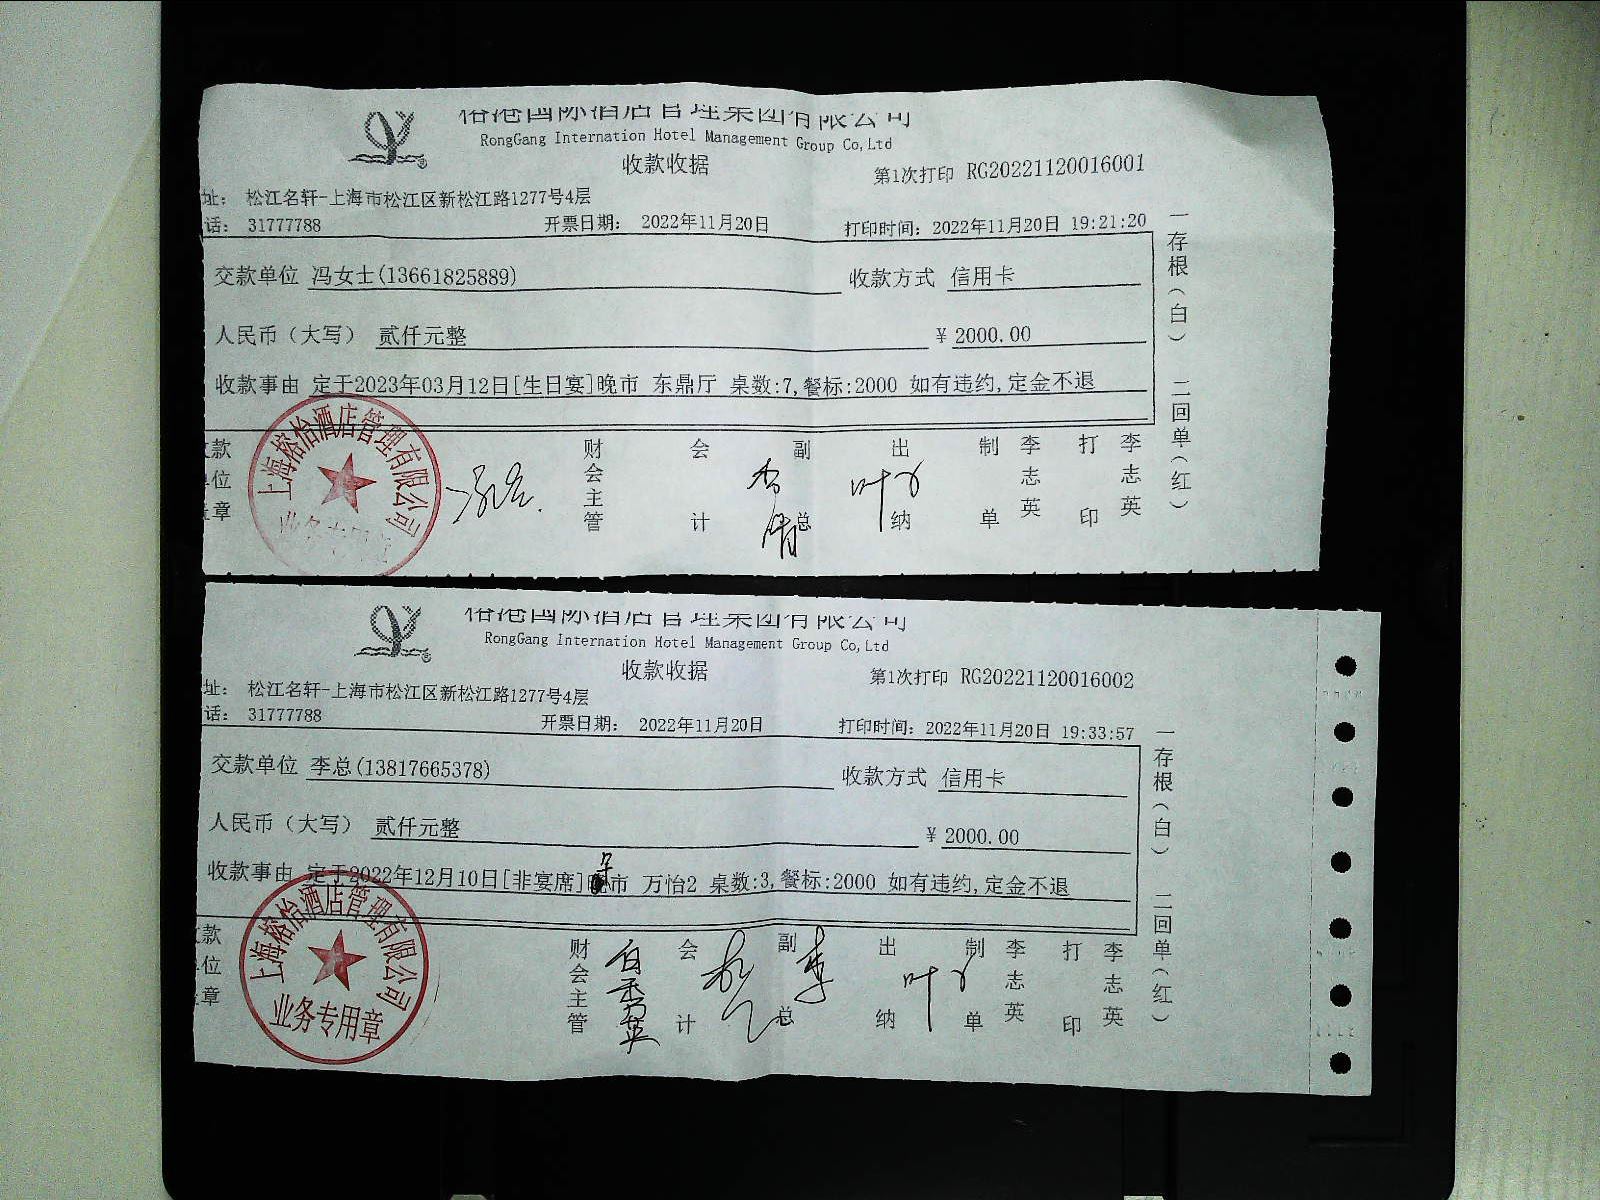 国际酒店管理集团有限公司
RongGang Internation Hotel Management Group Co,Ltd
收款收据
第1次打印 RG20221120016001
址： 松江名轩-上海市松江区新松江路1277号4层
话： 31777788
开票日期： 2022年11月20日
打印时间：2022年11月20日 19:21:20
交款单位 冯女士(13661825889)
收款方式 信用卡
人民币（大写） 贰仟元整
¥ 2000.00
收款事由 定于2023年03月12日[生日宴]晚市 东鼎厅 桌数:7,餐标:2000 如有违约,定金不退
一存根（白） 二回单（红）
款
位
章
上海榕怡酒店管理有限公司
业务专用章
财会主管
会计
副总
出纳
叶
制单
李志英
打印
李志英
国际酒店管理集团有限公司
RongGang Internation Hotel Management Group Co,Ltd
收款收据
第1次打印 RG20221120016002
址： 松江名轩-上海市松江区新松江路1277号4层
话： 31777788
开票日期： 2022年11月20日
打印时间：2022年11月20日 19:33:57
交款单位 李总(13817665378)
收款方式 信用卡
人民币（大写） 贰仟元整
¥ 2000.00
收款事由 定于2022年12月10日[非宴席]市 万怡2 桌数:3,餐标:2000 如有违约,定金不退
一存根（白） 二回单（红）
款
位
章
上海榕怡酒店管理有限公司
业务专用章
财会主管
会计
副总
李
出纳
叶
制单
李志英
打印
李志英